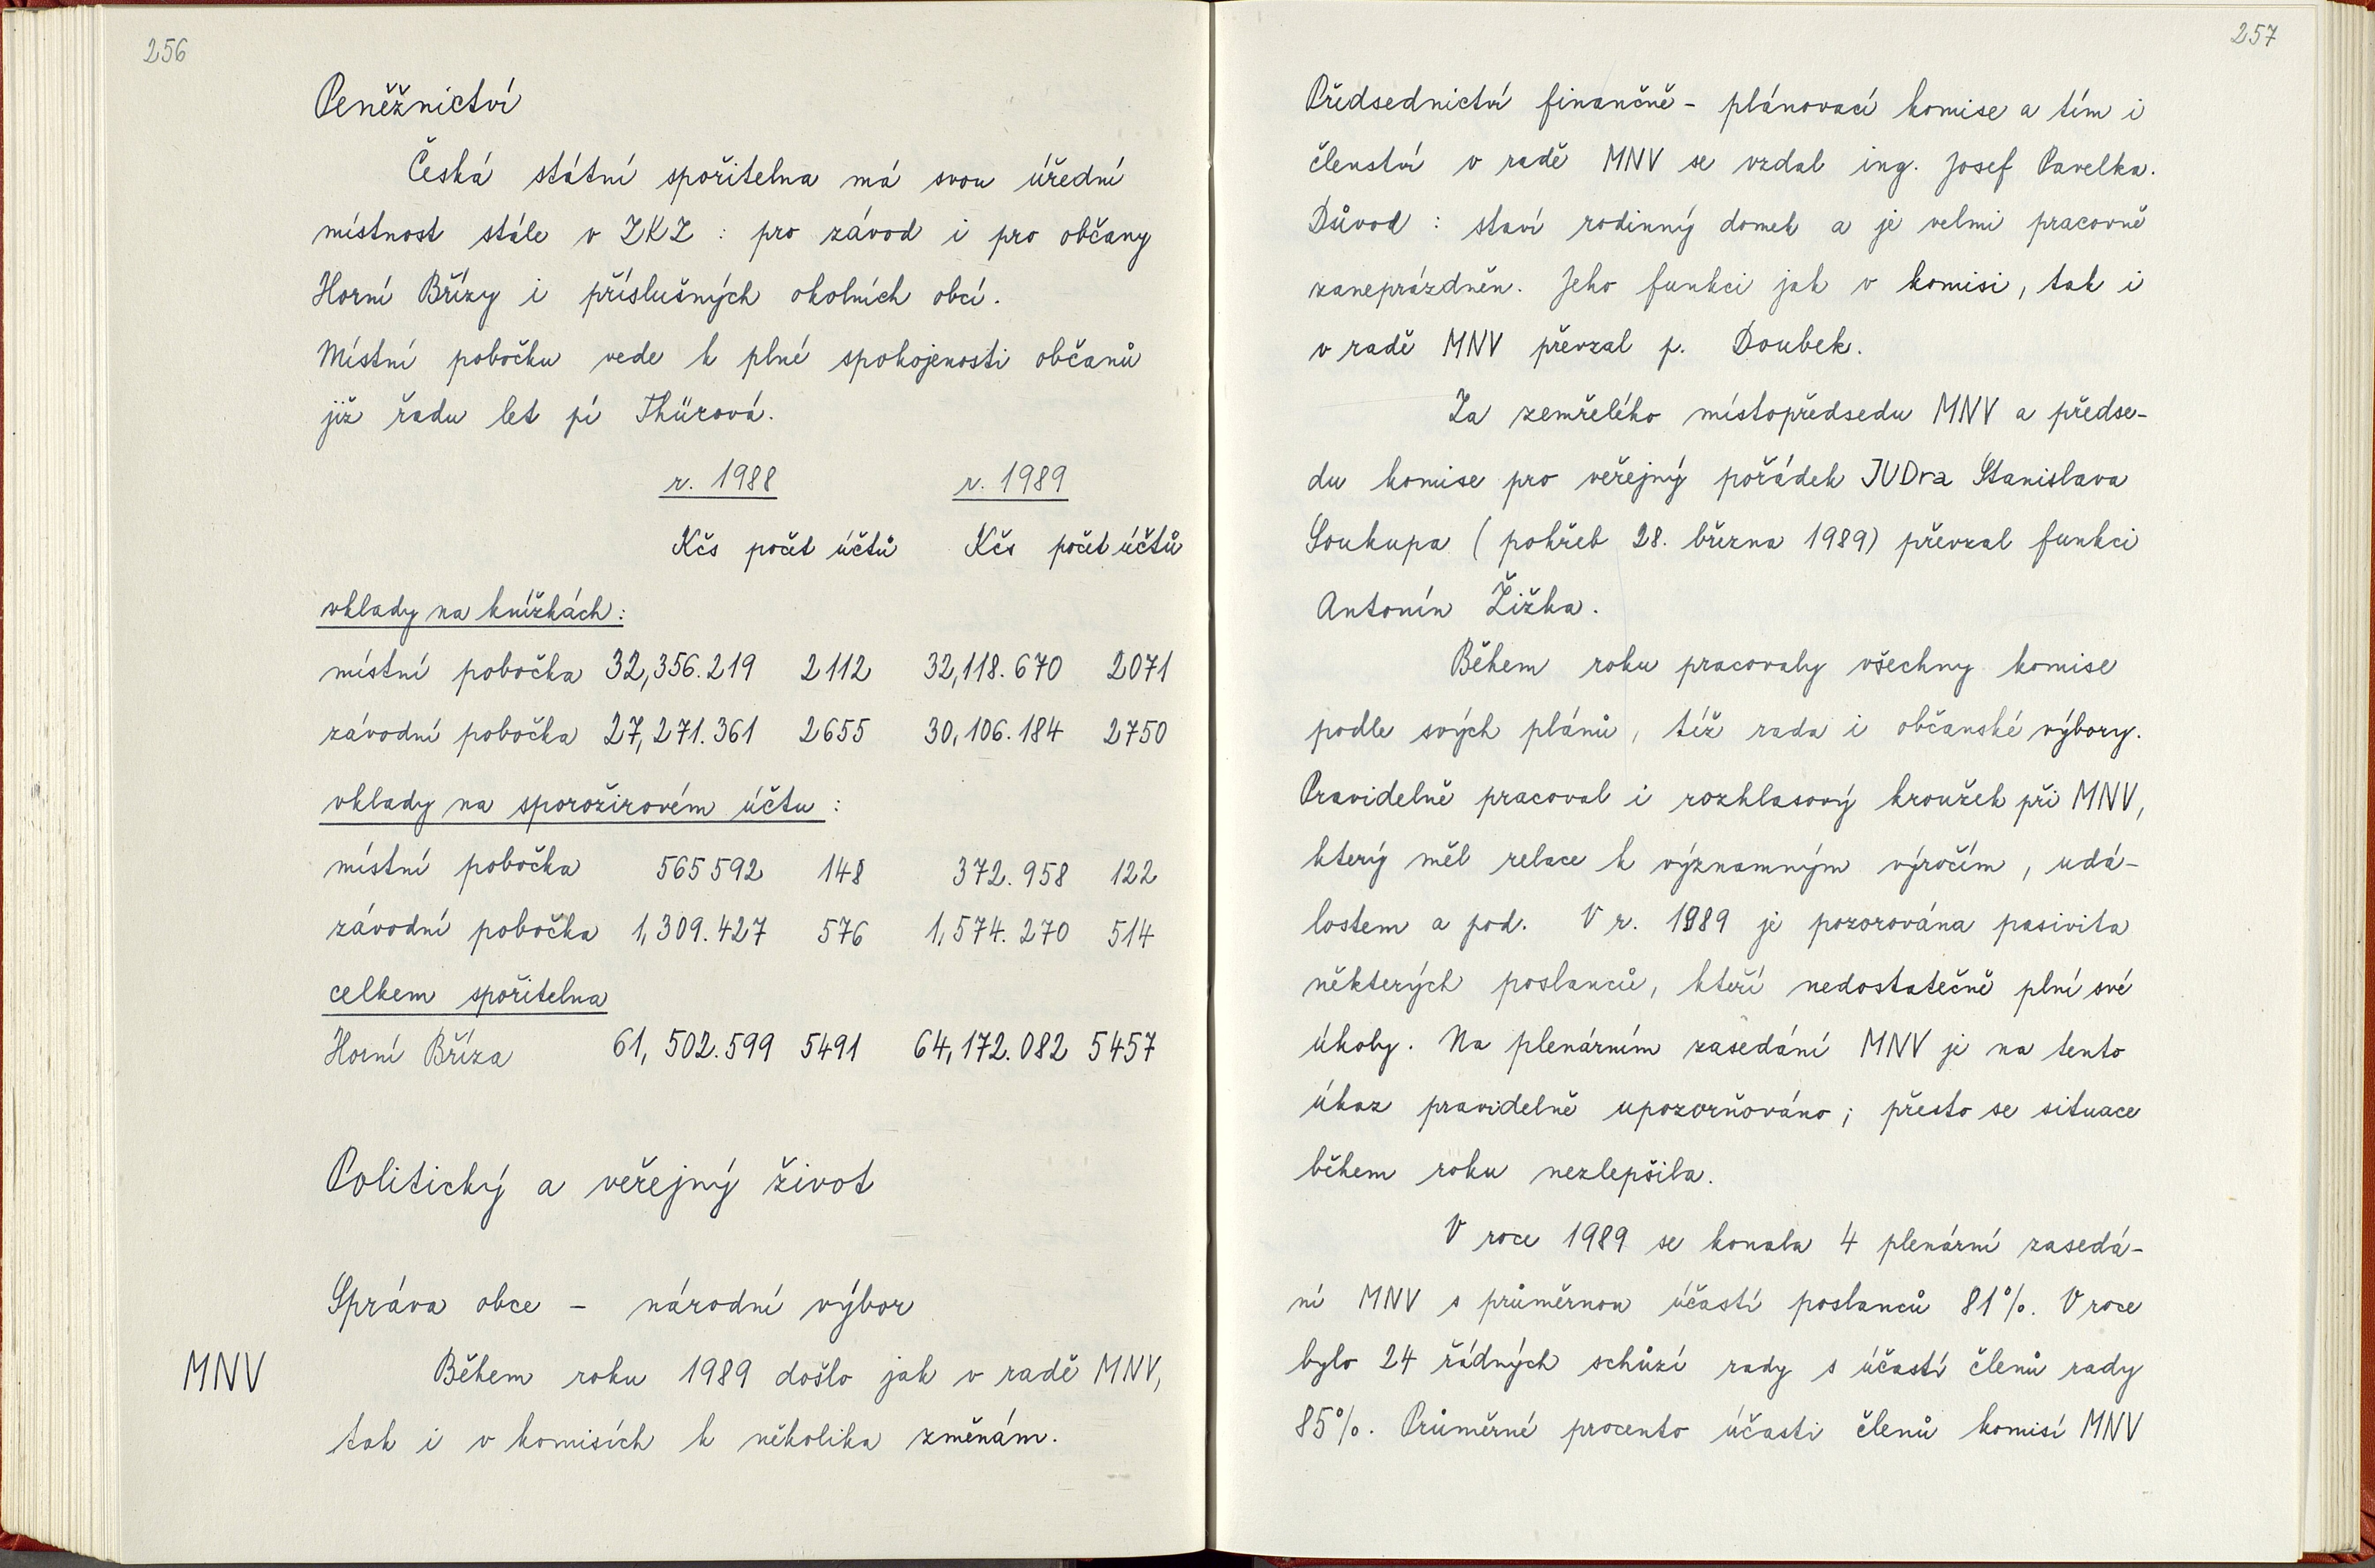 256
Peněžnictví
Česká státní spořitelna má svou úřední
místnost stále v ZKZ : pro závod i pro občany
Horní Břízy i příslušných okolních obcí.
Místní pobočku vede k plné spokojenosti občanů
již řadu let pí Thürová.
r. 1988 r. 1989
Kčs počet účtů Kčs počet účtů
vklady na knížkách:
místní pobočka 32,356.219 2112 32,118.670 2071
závodní pobočka 27,271.361 2655 30,106.184 2750
vklady na sporožirovém účtu :
místní pobočka 565592 148 372.958 122
závodní pobočka 1,309.427 576 1,574.270 514
celkem spořitelna
Horní Bříza 61,502.599 5491 64,172.082 5457
Politický a veřejný život
Správa obce – národní výbor
MNV Během roku 1989 došlo jak v radě MNV,
tak i v komisích k několika změnám.
257
Předsednictví finančně - plánovací komise a tím i
členství v radě MNV se vzdal ing. Josef Pavelka.
Důvod : staví rodinný domek a je velmi pracovně
zaneprázdněn. Jeho funkci jak v komisi, tak i
v radě MNV převzal p. Doubek.
Za zemřelého místopředsedu MNV a předse-
du komise pro veřejný pořádek JUDra Stanislava
Soukupa ( pohřeb 28. března 1989) převzal funkci
Antonín Žižka.
Během roku pracovaly všechny komise
podle svých plánů, též rada i občanské výbory.
Pravidelně pracoval i rozhlasový kroužek při MNV,
který měl relace k významným výročím, udá-
lostem a pod. V r. 1989 je pozorována pasivita
některých poslanců, kteří nedostatečně plní své
úkoly. Na plenárním zasedání MNV je na tento
úkaz pravidelně upozorňováno; přesto se situace
během roku nezlepšila.
V roce 1989 se konala 4 plenární zasedá-
ní MNV s průměrnou účastí poslanců 81%. V roce
bylo 24 řádných schůzí rady s účastí členů rady
85%. Průměrné procento účasti členů komisí MNV